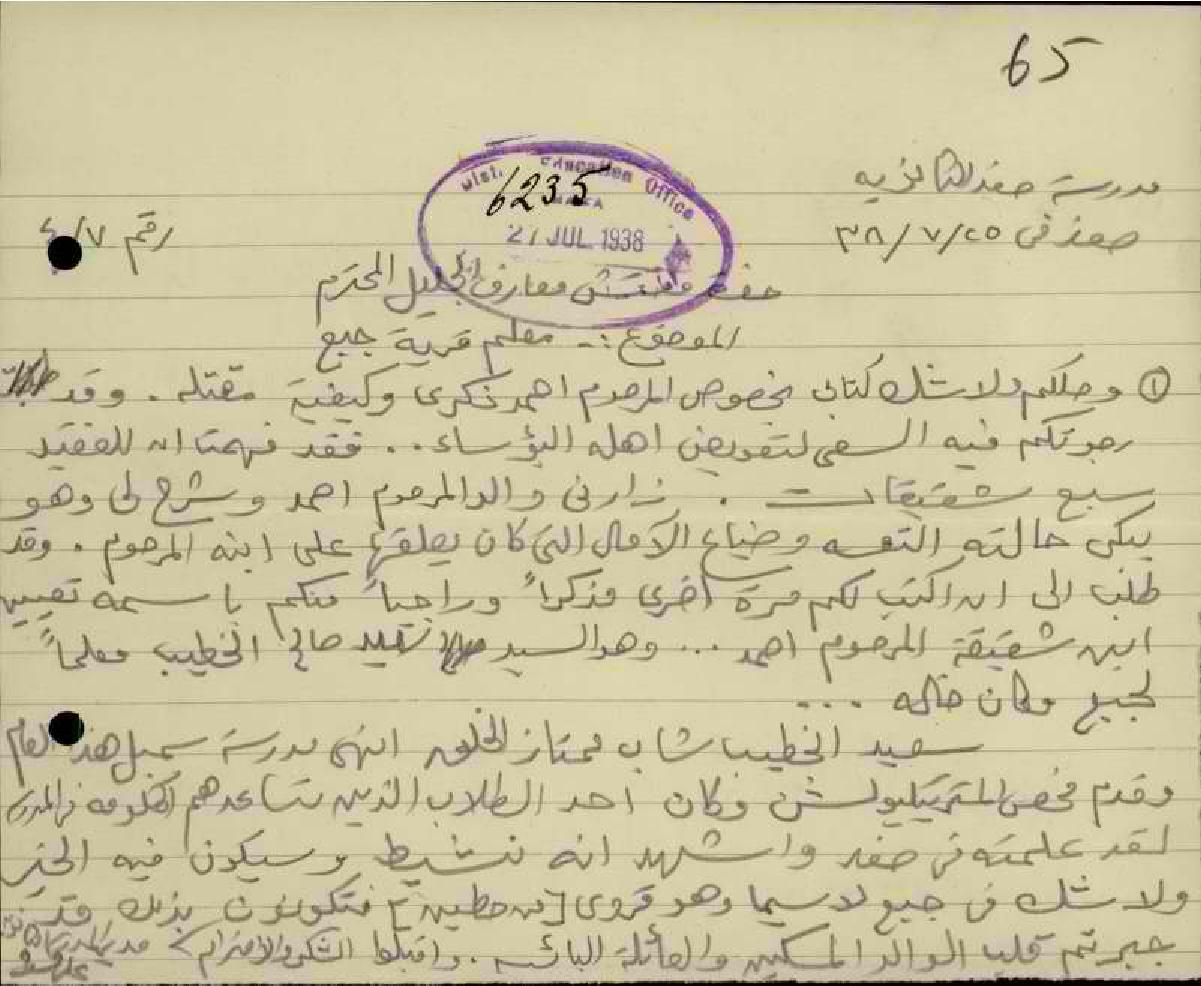 65
مدرسة صفد الثانويه
صفد في ٢٥/٧/٣٨
رقم ٧/
Dist. Education Office
6235
27 JUL 1938
حضرة مفتش معارف الجليل المحترم
الموضوع :- معلم قرية جبع
① وصلكم ولا شك كتابي بخصوص المرحوم احمد ذكرى وكيفية مقتله . وقد
رجوتكم فيه السعي لتعويض اهله البؤساء .. فقد فهمنا ان للفقيد
سبع شقيقات . زارني والد المرحوم احمد وشرح لي وهو
يبكي حالته التعسه وضياع الآمال التي كان يعلقها على ابنه المرحوم . وقد
طلب الى ان اكتب لكم مرة اخرى مذكراً وراجياً منكم باسمه تعيين
ابن شقيقة المرحوم احمد ... وهو السيد سعيد صالح الخطيب معلماً
لجبع مكان خاله ....
سعيد الخطيب شاب ممتاز الخلق انهى مدرسة سمبل هذا العام
وقدم فحص المتريكيوليشن وكان احد الطلاب الذين تساعدهم الحكومه
لقد علمته في صفد واشهد انه نشيط وسيكون فيه الخير
ولا شك في جبع لا سيما وهو قروي [من حطين] فتكونون بذلك قد
جبرتم قلب الوالد المسكين والعائلة البائسه . واقبلوا الشكر والاحترام